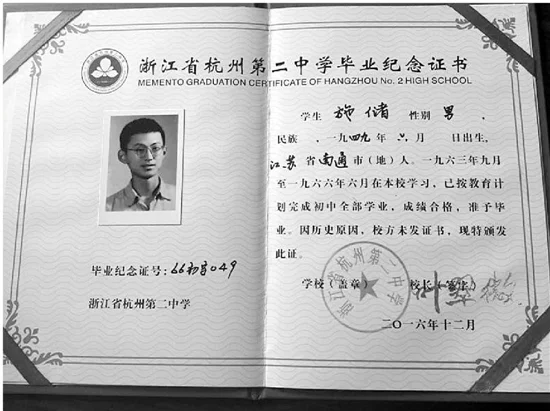 浙江省杭州第二中学毕业纪念证书
MEMENTO GRADUATION CERTIFICATE OF HANGZHOU No. 2 HIGH SCHOOL
学生 施储 性别 男 ,
民族 ,一九四九年 六 月 日出生,
江苏省南通市(地)人。一九六三年九月
至一九六六年六月在本校学习,已按教育计
划完成初中全部学业,成绩合格,准予毕
业。因历史原因,校方未发证书,现特颁发
此证。
学校(盖章) 校长(签字)
浙江省杭州第二中学
二〇一六年十二月
毕业纪念证号:66初字049
浙江省杭州第二中学